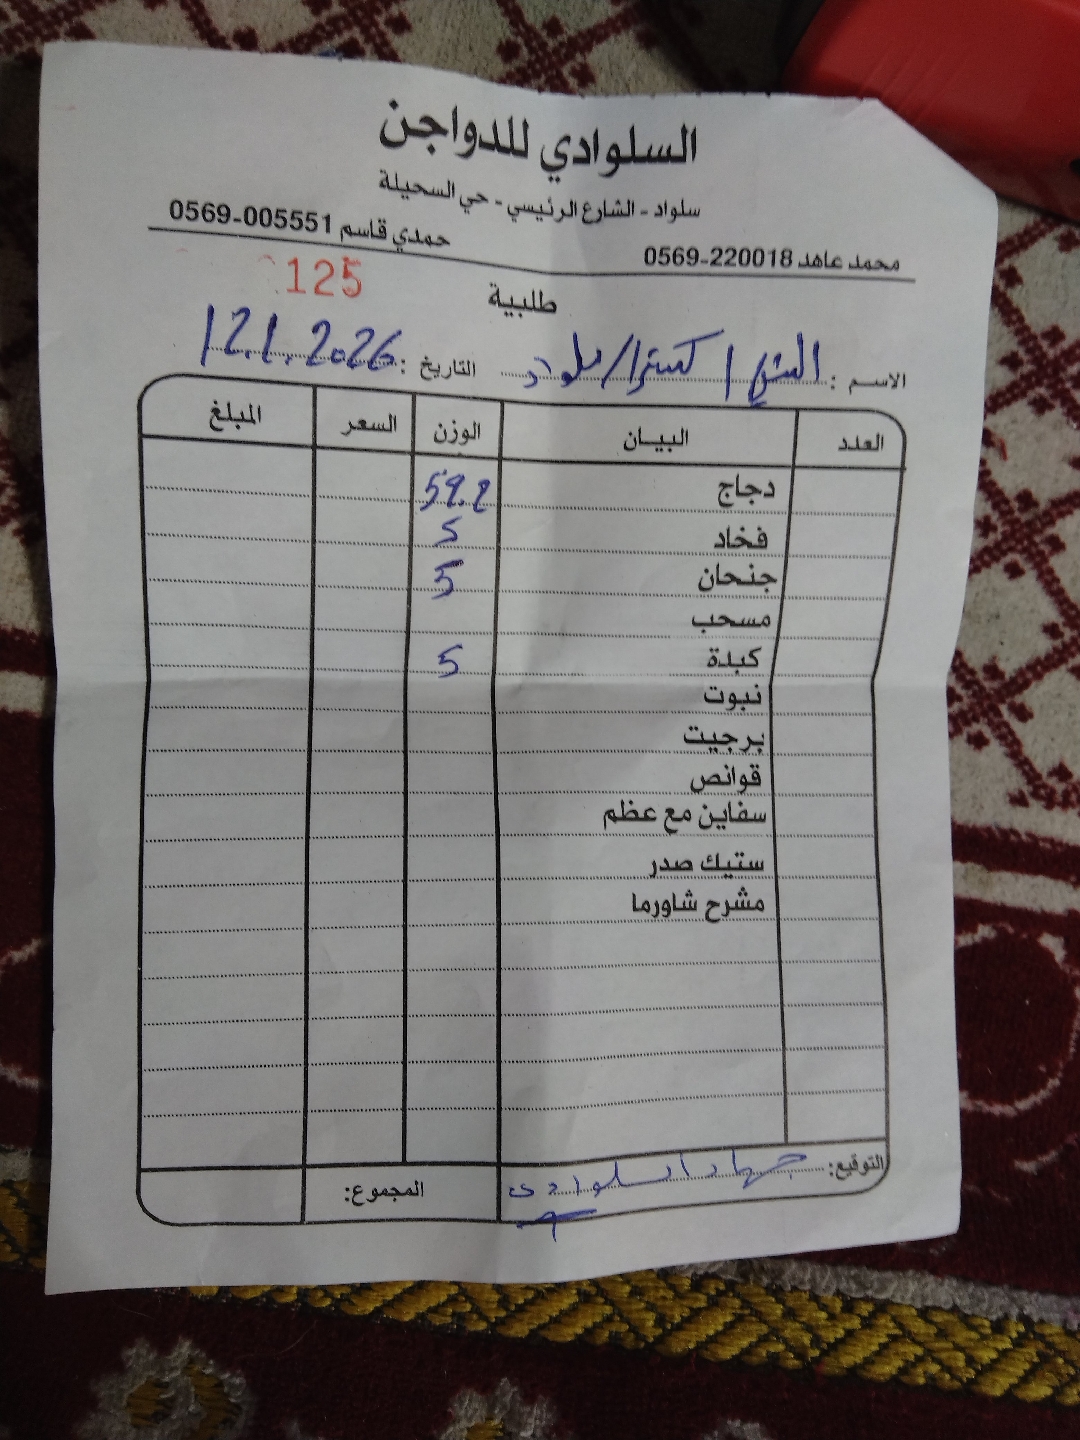 السلوادي للدواجن
سلواد - الشارع الرئيسي - حي السحيلة
محمد عاهد 220018-0569
حمدي قاسم 005551-0569
125
طلبية
الاسم : / كسترا/سلواد التاريخ : 12.1.2026
العدد البيـان الوزن السعر المبلغ
دجاج 59.2
فخاد 5
جنحان 5
مسحب
كبدة 5
نبوت
برجيت
قوانص
سفاين مع عظم
ستيك صدر
مشرح شاورما
التوقيع: جهاد السلوادي
المجموع: